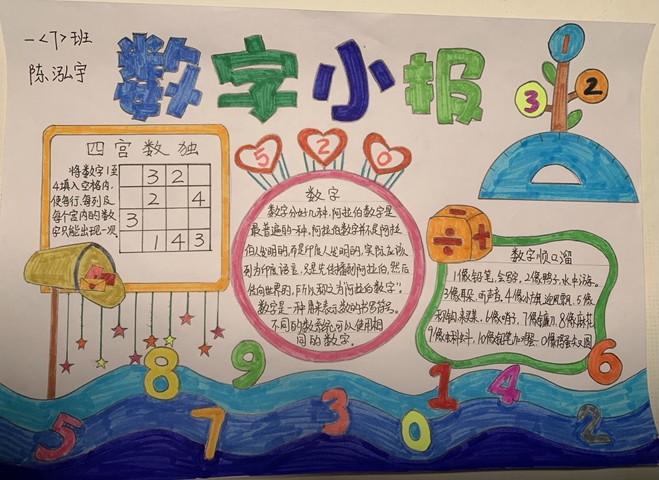 一<7>班
陈泓宇
数字小报
1
2
3
四宫数独
将数字1至
4填入空格内,
使每行、每列及
每个宫内的数
字只能出现一次。
3 2
2 4
3
1 4 3
5 2 0
数字
数字分好几种,阿拉伯数字是
最普遍的一种,阿拉伯数字并不是阿拉
伯人发明的,而是印度人发明的,实际应该
列为印度语言,只是先传播到阿拉伯,然后
传向世界的,所以称之为"阿拉伯数字"。
数字是一种用来表示数的书写符号。
不同的数系统可以使用相
同的数字。
÷ +
数字顺口溜
1像铅笔,会写字,2像鸭子,水中游。
3像耳朵,听声音,4像小旗,迎风飘,5像
秤钩,来买菜,6像哨子,7像镰刀,8像麻花
9像
0像鸡蛋大又圆
8 9 6
1 4
5 7 3 0 2